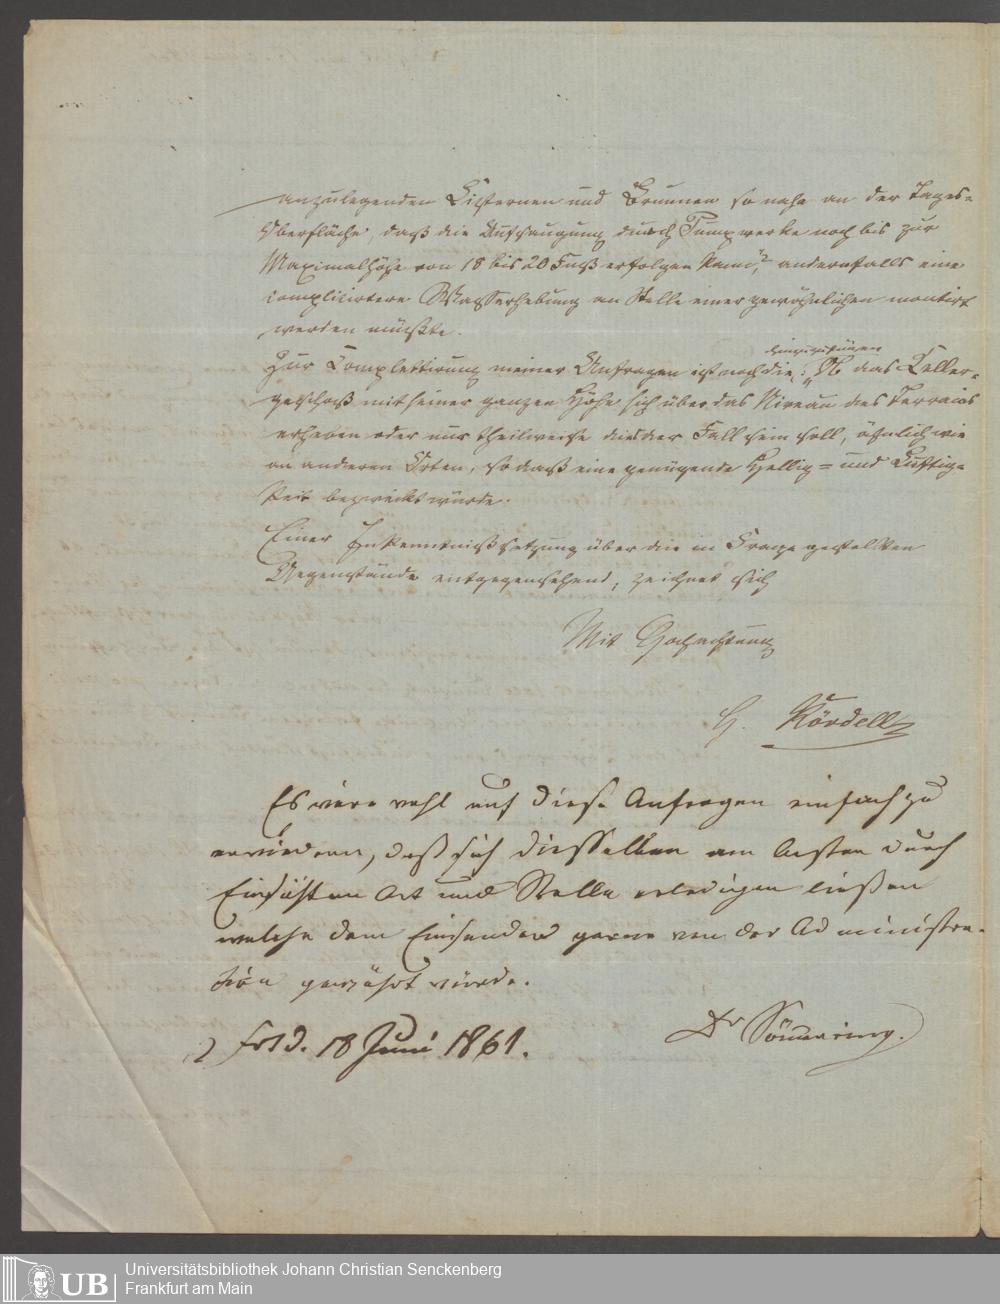 anzulegenden Cisternen und Brunnen so nahe an der Tages-
Oberfläche, daß die Aufsaugung durch Pumpwerke noch bis zur
Maximalhöhe von 18 bis 20 Fuß erfolgen kann, andernfalls eine
complicirtere Wasserhebung an Stelle einer gewöhnlichen montirt
werden müßte.
hinzuzufügen
Zur Complettirung meiner Anfragen ist noch die: „Ob das Keller-
geschoß mit seiner ganzen Höhe sich über das Niveau des Terrains
erheben oder nur theilweise dieses der Fall sein soll, ähnlich wie
an anderen Orten, so daß eine genügende Hellig- und Luftig-
keit bezweckt würde.
Einer Inkenntnißsetzung über die in Frage gestellten
Gegenstände entgegensehend, zeichnet sich
Mit Hochachtung
H. Kördell
Es wäre wohl auf diese Anfragen einfach zu
erwiedern, daß sich dieselben am besten durch
Einsicht an Ort und Stelle erledigen ließen
welche dem Einsender gerne von der Administra-
tion gewährt würde.
Frkf d. 18 Juni 1861.
Dr Sömmering.
UB
Universitätsbibliothek Johann Christian Senckenberg
Frankfurt am Main